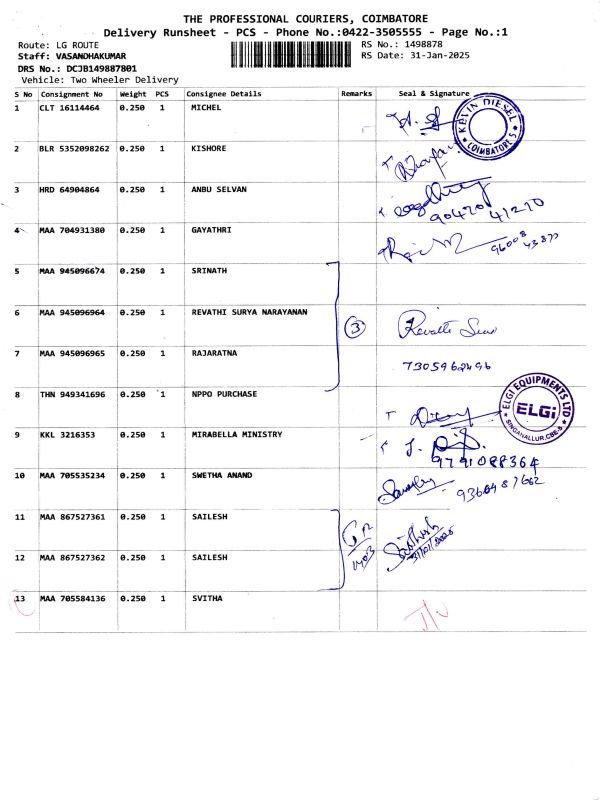 THE PROFESSIONAL COURIERS, COIMBATORE
Delivery Runsheet - PCS - Phone No.:0422-3505555 - Page No.:1
Route: LG ROUTE
RS No.: 1498878
Staff: VASANDHAKUMAR
RS Date: 31-Jan-2025
DRS No.: DCJB149887801
Vehicle: Two Wheeler Delivery
S No Consignment No Weight PCS Consignee Details Remarks Seal & Signature
1 CLT 16114464 0.250 1 MICHEL
KEVIN DIESEL COIMBATORE 5
2 BLR 5352098262 0.250 1 KISHORE
3 HRD 64904864 0.250 1 ANBU SELVAN
90470 41270
4 MAA 704931380 0.250 1 GAYATHRI
96008 43877
5 MAA 945096674 0.250 1 SRINATH
6 MAA 945096964 0.250 1 REVATHI SURYA NARAYANAN
3 Revathi
7 MAA 945096965 0.250 1 RAJARATNA
7305962496
8 THN 949341696 0.250 1 NPPO PURCHASE
ELGI EQUIPMENTS LTD ELGi SINGANALLUR, CBE-5
9 KKL 3216353 0.250 1 MIRABELLA MINISTRY
9791088364
10 MAA 705535234 0.250 1 SWETHA ANAND
11 MAA 867527361 0.250 1 SAILESH
1403
31/01/2025
12 MAA 867527362 0.250 1 SAILESH
13 MAA 705584136 0.250 1 SVITHA